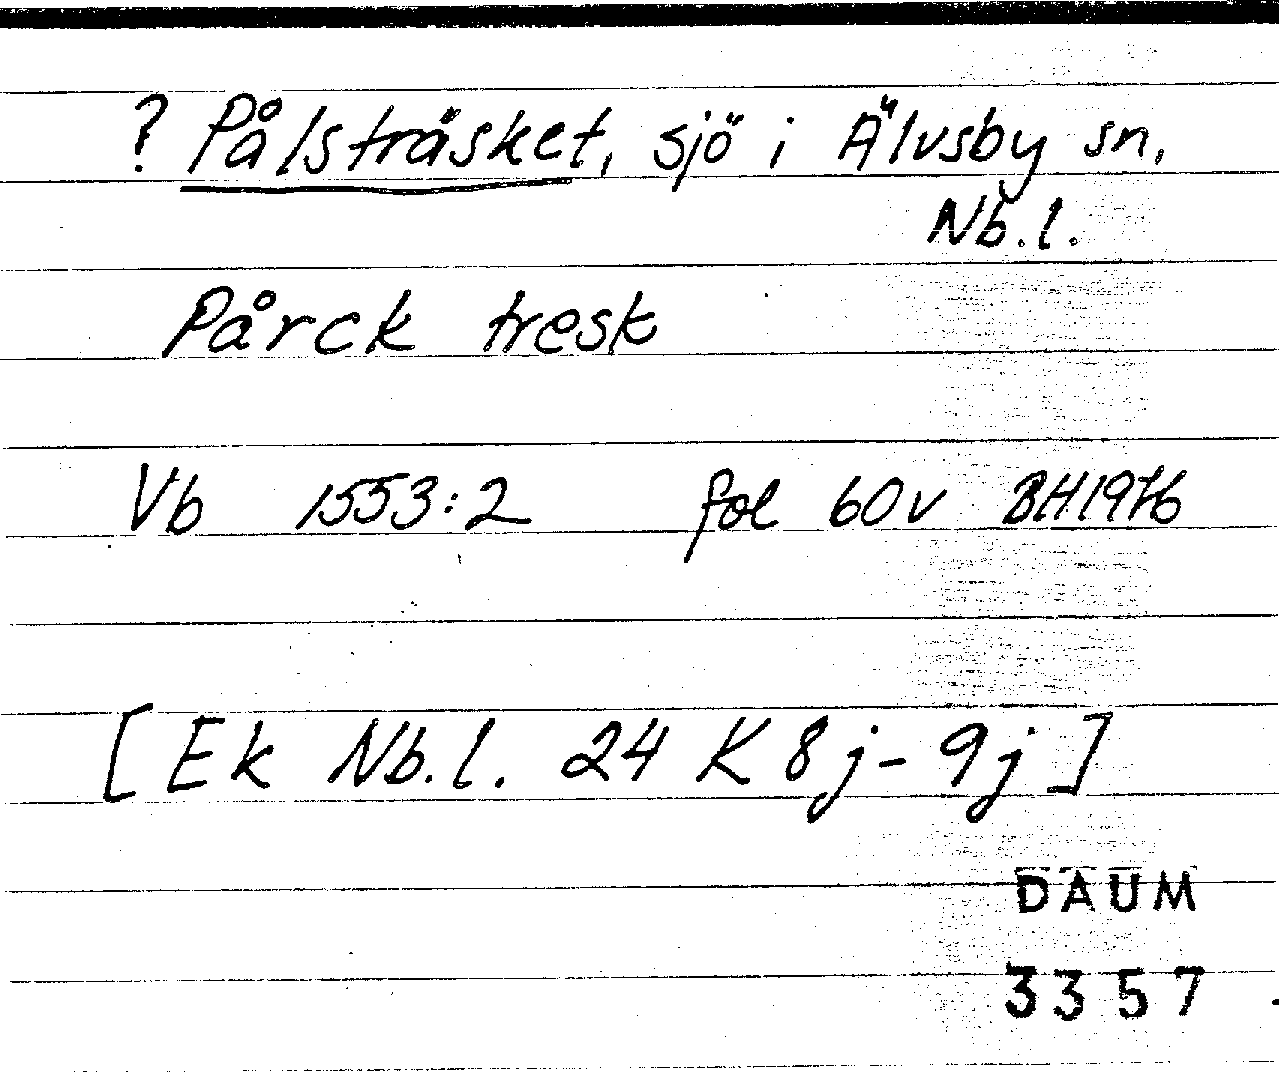 ? Pålsträsket, sjö i Älvsby sn,
Nb.l.
Pårck tresk
Vb 1553:2 fol 60v BH1976
[Ek Nb.l. 24 K 8j-9j]
DAUM
3357